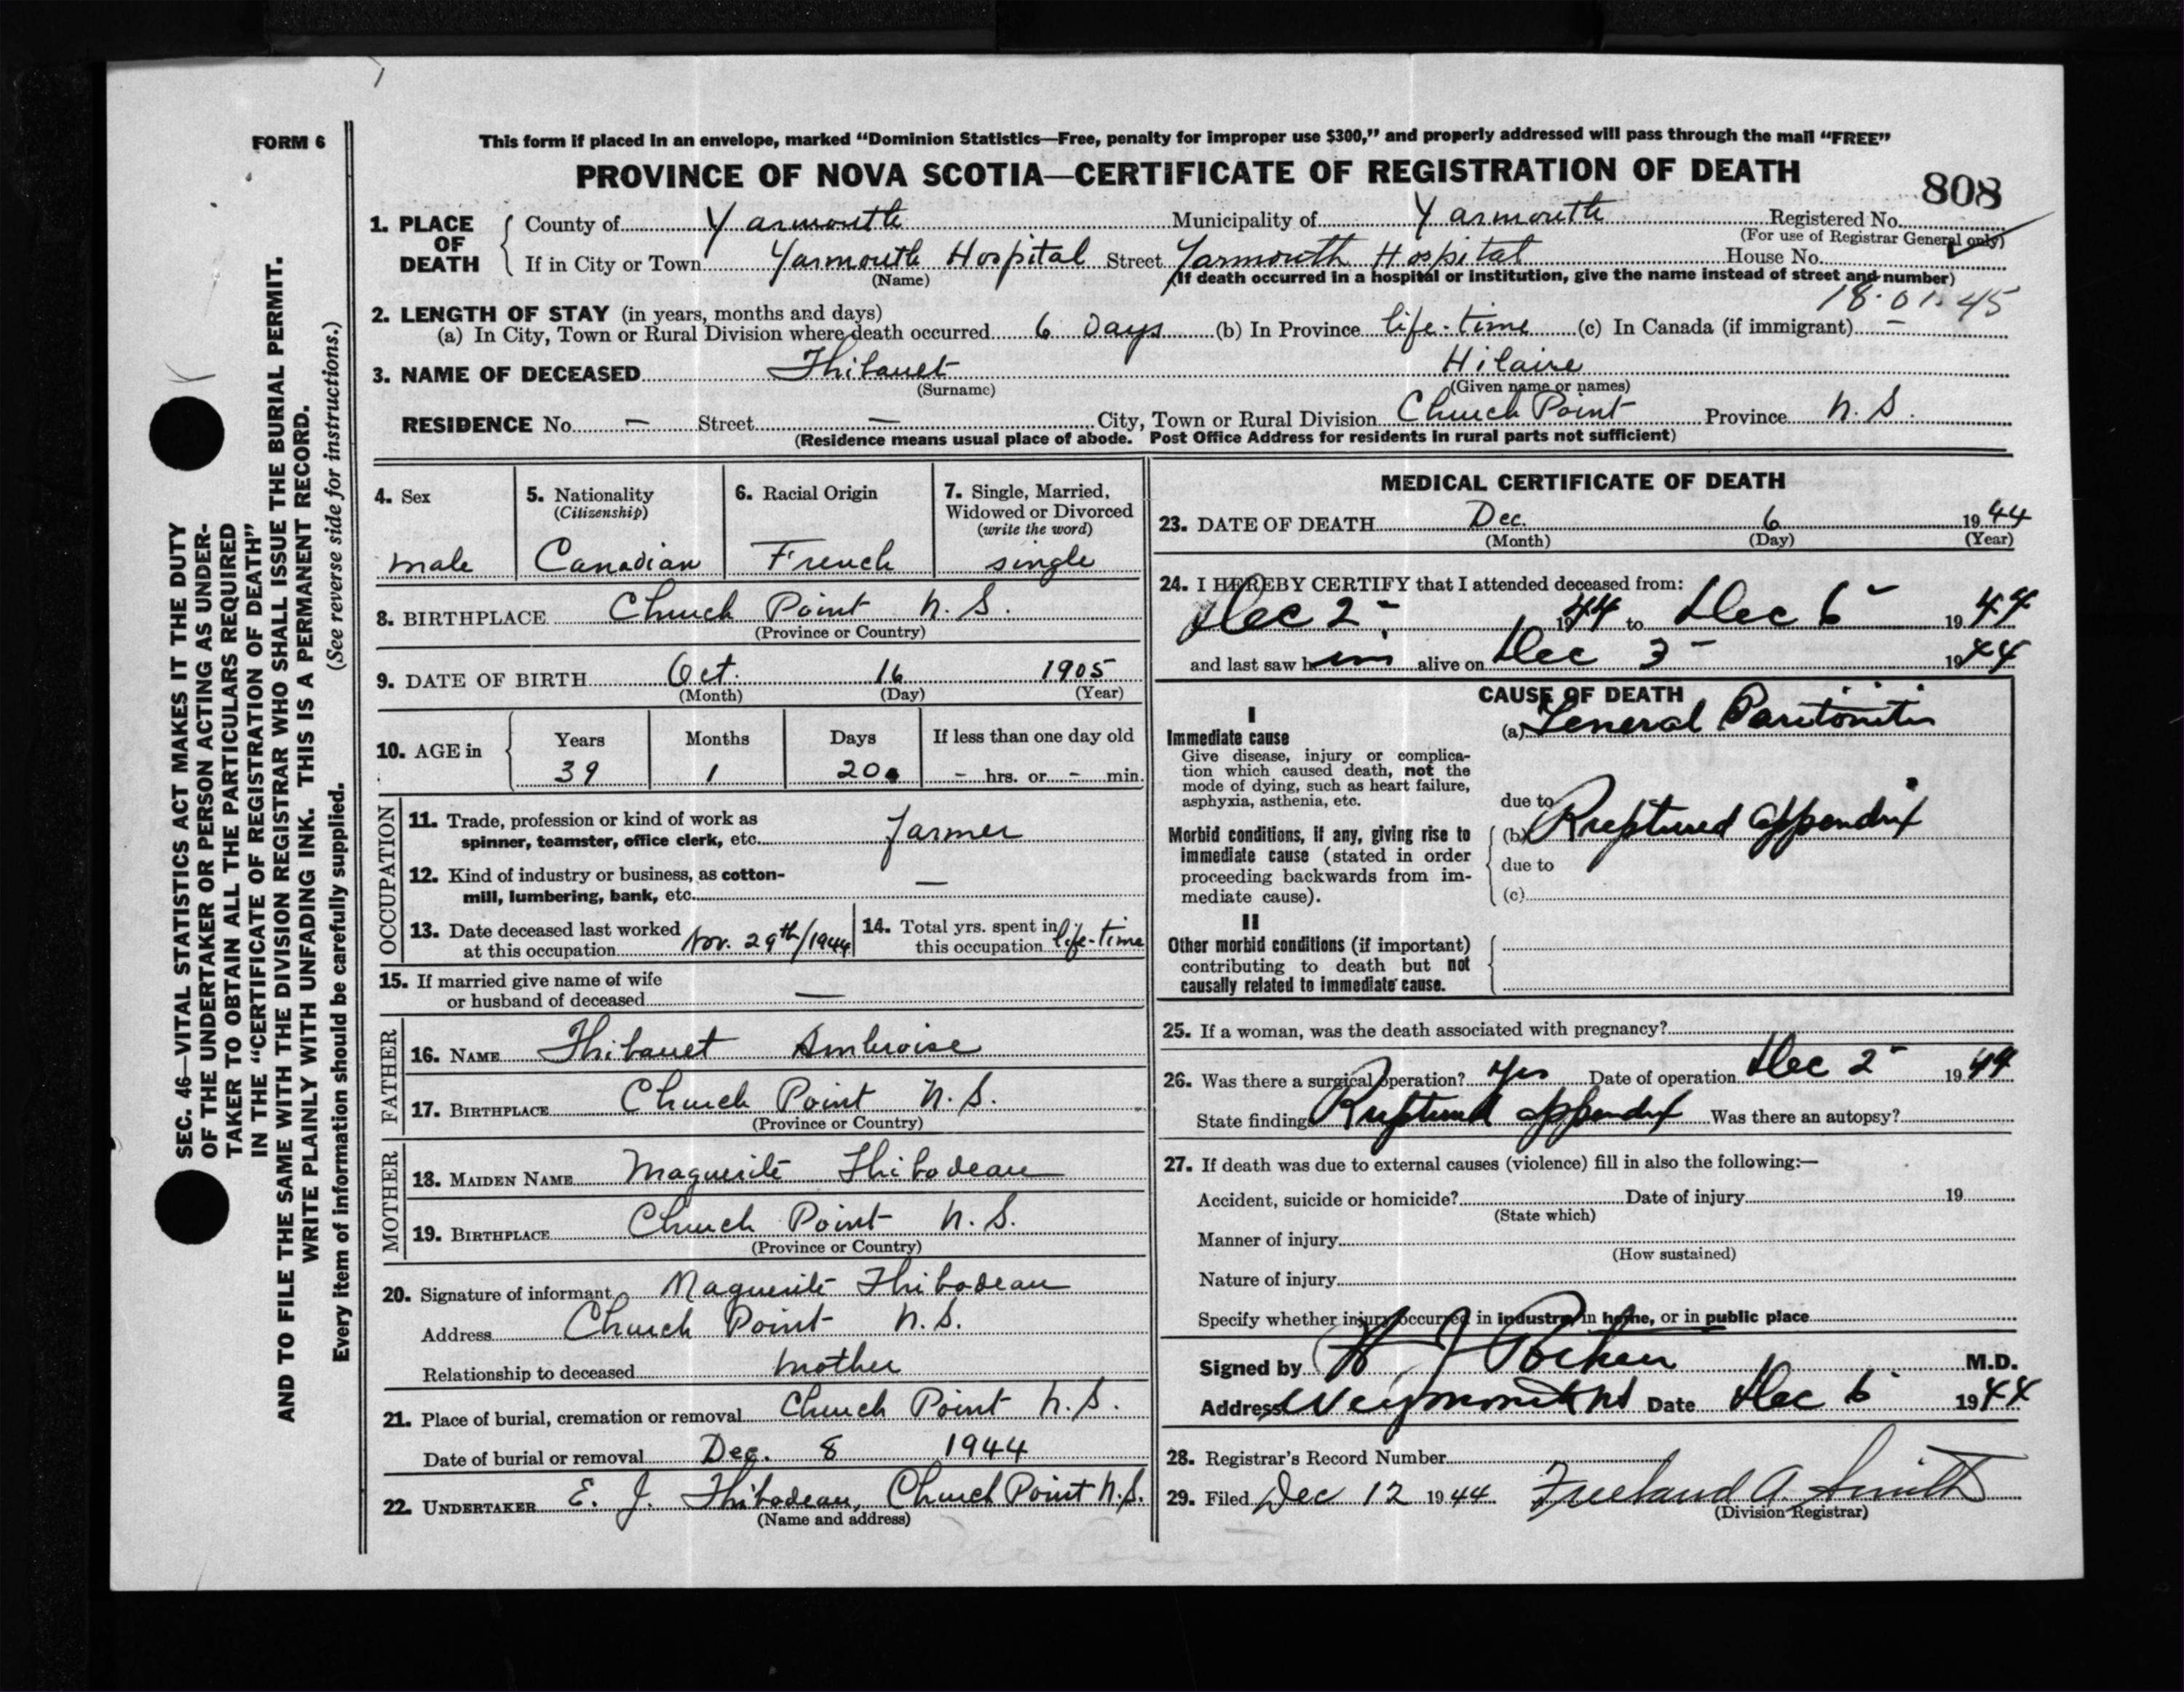 FORM 6
This form if placed in an envelope, marked “Dominion Statistics—Free, penalty for improper use $300,” and properly addressed will pass through the mail “FREE”
PROVINCE OF NOVA SCOTIA—CERTIFICATE OF REGISTRATION OF DEATH
808
1. PLACE OF DEATH County of Yarmouth Municipality of Yarmouth Registered No.
(For use of Registrar General only)
If in City or Town Yarmouth Hospital Street Yarmouth Hospital House No.
(Name) (If death occurred in a hospital or institution, give the name instead of street and number)
18·01·45
2. LENGTH OF STAY (in years, months and days)
(a) In City, Town or Rural Division where death occurred 6 Days (b) In Province life-time (c) In Canada (if immigrant) —
3. NAME OF DECEASED Thibault Hilaire
(Surname) (Given name or names)
RESIDENCE No. — Street — City, Town or Rural Division Church Point Province N.S.
(Residence means usual place of abode. Post Office Address for residents in rural parts not sufficient)
4. Sex
male
5. Nationality
(Citizenship)
Canadian
6. Racial Origin
French
7. Single, Married,
Widowed or Divorced
(write the word)
single
8. BIRTHPLACE Church Point N.S.
(Province or Country)
9. DATE OF BIRTH Oct. 16 1905
(Month) (Day) (Year)
10. AGE in
Years Months Days If less than one day old
39 1 20 – hrs. or – min.
OCCUPATION
11. Trade, profession or kind of work as
spinner, teamster, office clerk, etc. farmer
12. Kind of industry or business, as cotton-
mill, lumbering, bank, etc. —
13. Date deceased last worked
at this occupation Nov. 29th/1944
14. Total yrs. spent in
this occupation life-time
15. If married give name of wife
or husband of deceased —
FATHER
16. NAME Thibault Ambroise
17. BIRTHPLACE Church Point N.S.
(Province or Country)
MOTHER
18. MAIDEN NAME Maguerite Thibodeau
19. BIRTHPLACE Church Point N.S.
(Province or Country)
20. Signature of informant Maguerite Thibodeau
Address Church Point N.S.
Relationship to deceased mother
21. Place of burial, cremation or removal Church Point N.S.
Date of burial or removal Dec. 8 1944
22. UNDERTAKER E. J. Thibodeau, Church Point N.S.
(Name and address)
MEDICAL CERTIFICATE OF DEATH
23. DATE OF DEATH Dec. 6 1944
(Month) (Day) (Year)
24. I HEREBY CERTIFY that I attended deceased from:
Dec 2 - 1944 to Dec 6 - 1944
and last saw him alive on Dec 3 - 1944
CAUSE OF DEATH
I
Immediate cause
Give disease, injury or complica-
tion which caused death, not the
mode of dying, such as heart failure,
asphyxia, asthenia, etc.
(a) General Paritonitis
due to
Morbid conditions, if any, giving rise to
immediate cause (stated in order
proceeding backwards from im-
mediate cause).
(b) Ruptured appendix
due to
(c)
II
Other morbid conditions (if important)
contributing to death but not
causally related to immediate cause.
25. If a woman, was the death associated with pregnancy?
26. Was there a surgical operation? Yes Date of operation Dec 2 - 1944
State findings Ruptured appendix Was there an autopsy?
27. If death was due to external causes (violence) fill in also the following:—
Accident, suicide or homicide? Date of injury 19
(State which)
Manner of injury
(How sustained)
Nature of injury
Specify whether injury occurred in industry, in home, or in public place
Signed by M.D.
Address Weymouth NS Date Dec 6 1944
28. Registrar’s Record Number
29. Filed Dec 12 1944 Freeland A. Smith
(Division Registrar)
SEC. 46—VITAL STATISTICS ACT MAKES IT THE DUTY
OF THE UNDERTAKER OR PERSON ACTING AS UNDER-
TAKER TO OBTAIN ALL THE PARTICULARS REQUIRED
IN THE “CERTIFICATE OF REGISTRATION OF DEATH”
AND TO FILE THE SAME WITH THE DIVISION REGISTRAR WHO SHALL ISSUE THE BURIAL PERMIT.
WRITE PLAINLY WITH UNFADING INK. THIS IS A PERMANENT RECORD.
Every item of information should be carefully supplied. (See reverse side for instructions.)